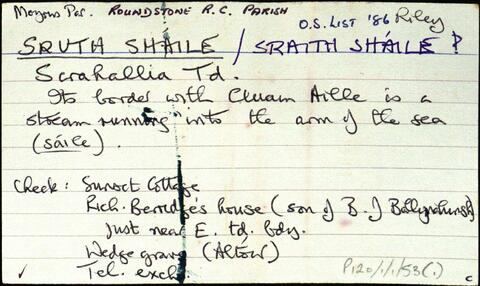 Moyrus Par. ROUNDSTONE R.C. PARISH
O.S. LIST '86 Riley
SRUTH SHÁILE / SRAITH SHÁILE ?
Scrahallia Td.
Its border with Cluain Aille is a
stream running into the arm of the sea
(sáile).
Check: Sunset Cottage
Rich. Berridge's house (son of B. of Ballynahinch)
Just near E. td. bdy.
Wedge grave (Altóir)
✓ Tel. exch.
P120/1/1/53(1)
C